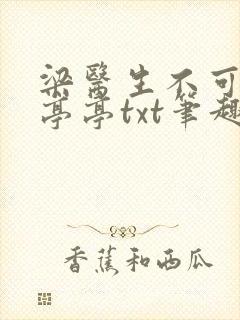 梁醫生不可
亭亭txt筆趣
香蕉和西瓜